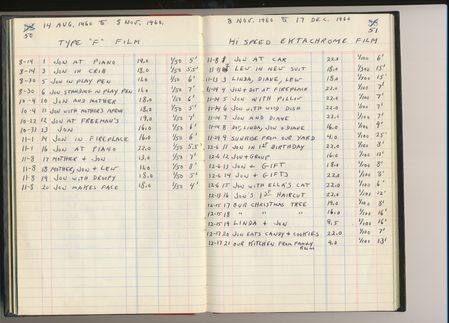 14 AUG. 1960 TO 8 NOV. 1960.
50
TYPE "F" FILM
8-14 1 JON AT PIANO 14.0 1/50 5'
8-14 3 JON IN CRIB 18.0 1/50 5.5'
8-30 5 JON IN PLAY PEN 16.0 1/50 6'
8-30 6 JON STANDING IN PLAY PEN 16.0 1/50 7'
10-4 10 JON AND MOTHER 18.0 1/50 6'
10-4 11 JON WITH MOTHERS APRON 18.0 1/50
10-22 12 JON AT FREEMAN'S 19.0 1/50 7'
10-31 13 JON 16.0 1/50 6'
11-1 14 JON IN FIREPLACE 16.0 1/50 6'
11-1 16 JON AT PIANO 22.0 1/50 5.5'
11-8 17 MOTHER + JON 13.0 1/50 7'
11-8 18 MOTHER, JON + LEW 16.0 1/50 8'
11-8 19 JON WITH DROPY 18.0 1/50 5'
11-8 20 JON MAKES FACE 18.0 1/50 4'
8 NOV. 1960 TO 17 DEC. 1960
51
HI SPEED EKTACHROME FILM
11-8 1 JON AT CAR 22.0 1/100 6'
LEW IN NEW SUIT 18.0 15'
11-13 3 LINDA, DIANE, LEW 18.0 1/100 15'
11-24 4 JON + DOT AT FIREPLACE 22.0 1/100 7'
11-24 5 JON WITH PILLOW 22.0 1/100 7'
11-24 6 JON WITH WOOD DISH 22.0 1/100 7'
11-24 7 JON AND DIANE 22.0 1/100 7'
11-24 8 DOT, LINDA, JON + DIANE 16.0 1/100 8'
11-24 9 SUNROSE FROM OUR YARD 4.0 1/100 25'
12-6 11 JON IN 1ST BIRTHDAY 22.0 1/100 8'
12-6 12 JON + GROUP 16.0 1/100 12'
12-6 13 JON + GIFT 18.0 1/100 8'
12-6 14 JON + GIFTS 22.0 1/100 8'
12-6 15 JON WITH ELLA'S CAT 22.0 1/100 6'
12-13 16 JON'S 1ST HAIRCUT 22.0 1/100 12'
12-15 17 OUR CHRISTMAS TREE 19.0 1/100 8'
12-15 18 " " " 16.0 1/100 16'
12-15 19 LINDA + JON 9.5 1/100 16'
12-17 20 JON EATS CANDY + COOKIES 22.0 1/100 7'
12-17 21 OUR KITCHEN FROM FAMILY 4.0 1/100 13'
RM